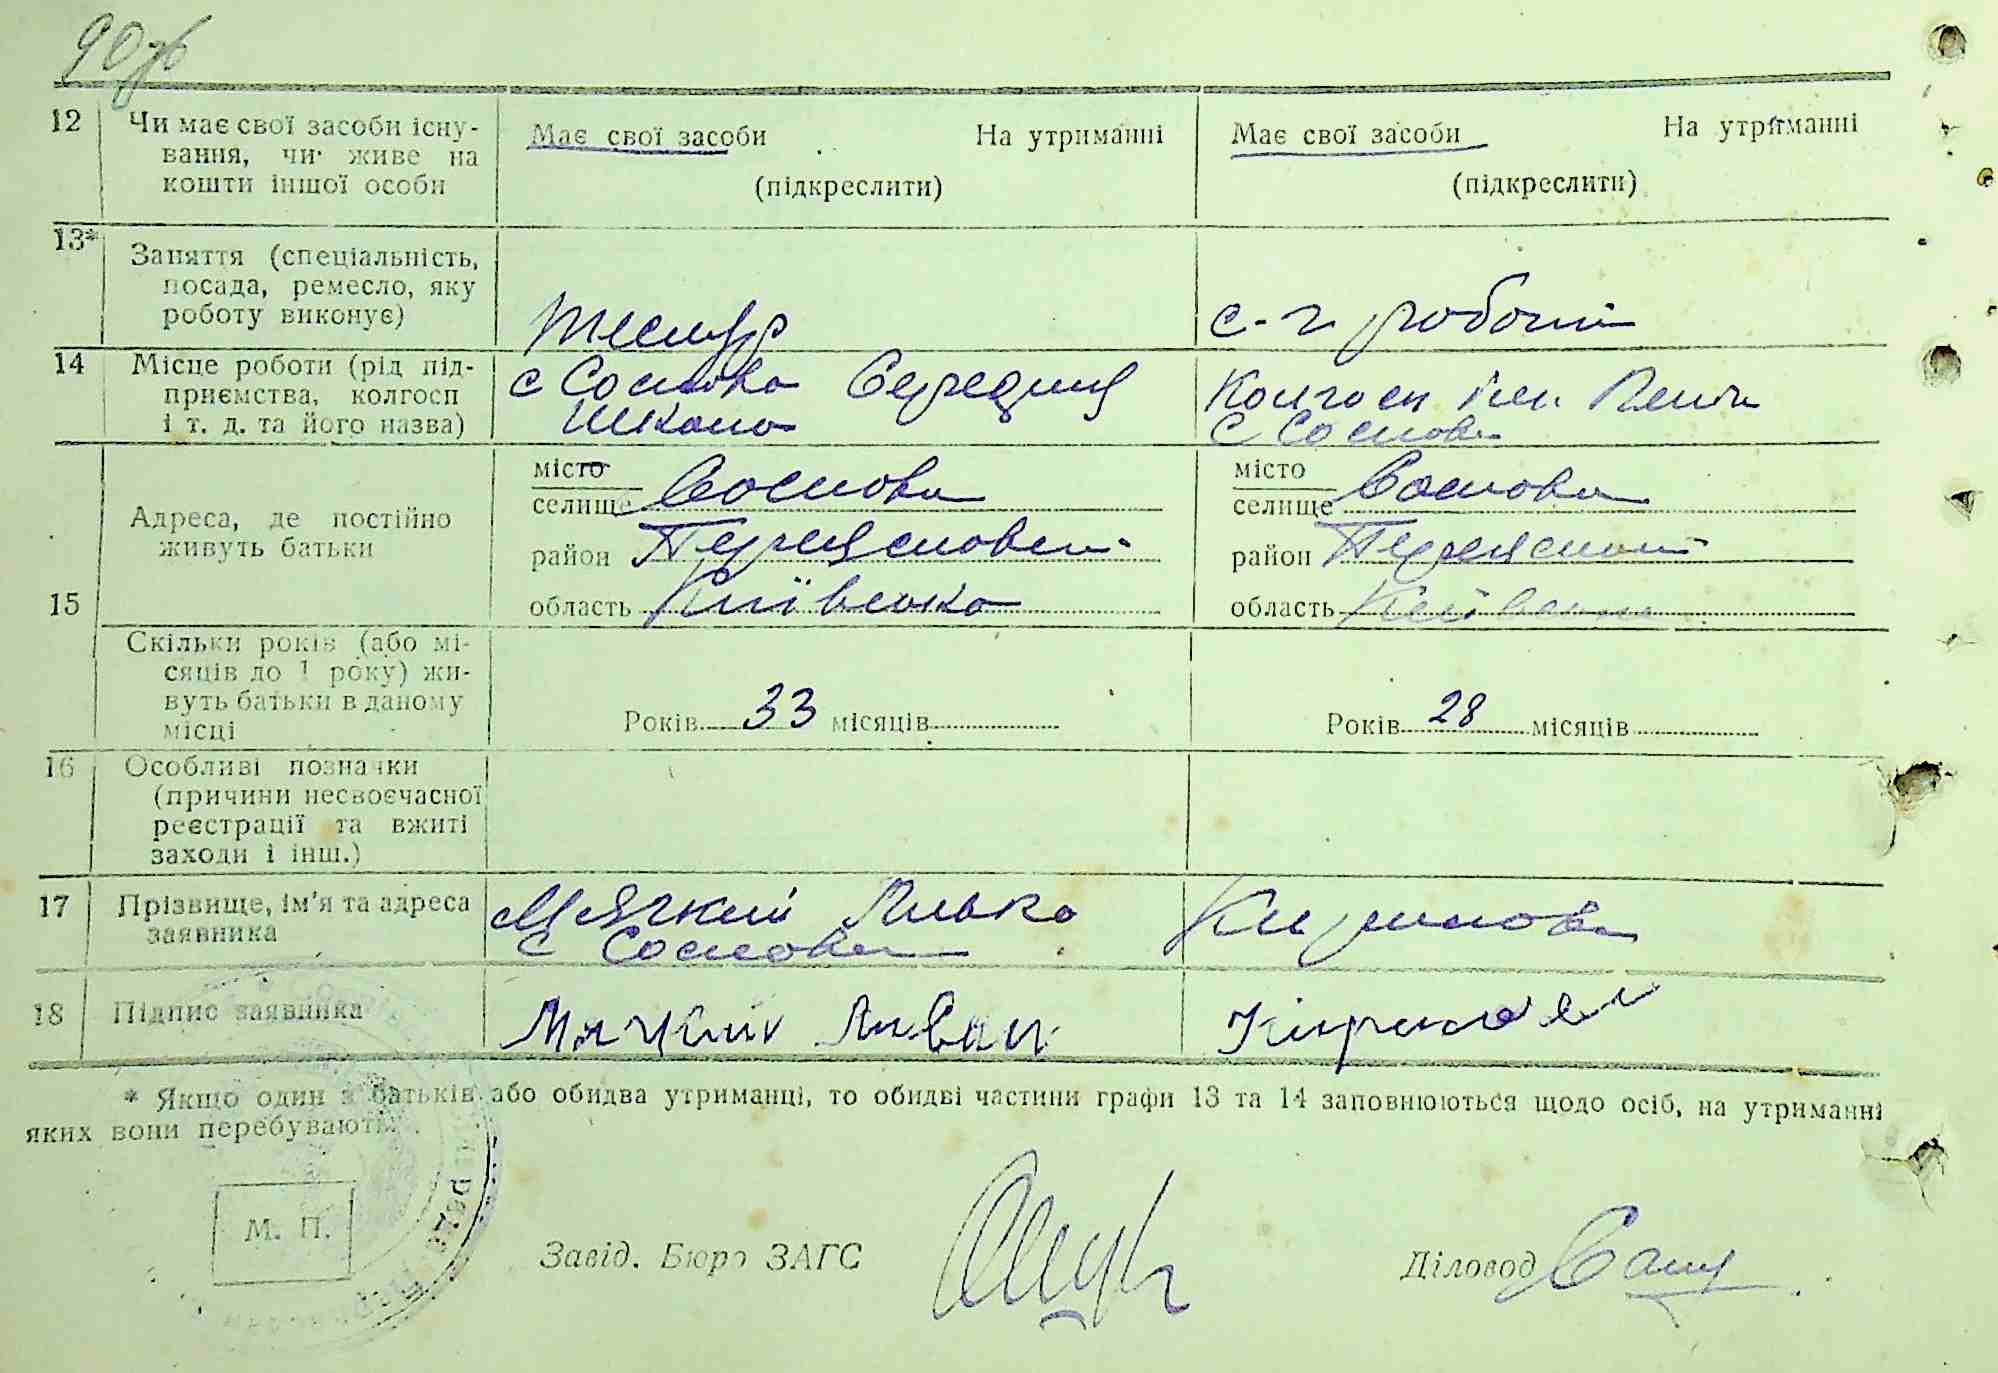 90зв
12 Чи має свої засоби існу-
вання, чи живе на
кошти іншої особи
Має свої засоби На утриманні
(підкреслити)
Має свої засоби На утриманні
(підкреслити)
13* Заняття (спеціальність,
посада, ремесло, яку
роботу виконує)
Тесляр
с-г роботи
14 Місце роботи (рід під-
приємства, колгосп
і т. д. та його назва)
с Соснова Середня
Школа
Колгосп ім.
с Соснова
15 Адреса, де постійно
живуть батьки
місто
селище Соснова
район Переясловськ
область Київська
місто
селище Соснова
район
область Київська
Скільки років (або мі-
сяців до 1 року) жи-
вуть батьки в даному
місці
Років 33 місяців
Років 28 місяців
16 Особливі позначки
(причини несвоєчасної
реєстрації та вжиті
заходи і інш.)
17 Прізвище, ім'я та адреса
заявника
Мячкий
с Соснова
18 Підпис заявника
Мячкий
* Якщо один з батьків або обидва утриманці, то обидві частини графи 13 та 14 заповнюються щодо осіб, на утриманні
яких вони перебувають.
М. П.
Завід. Бюро ЗАГС
Діловод